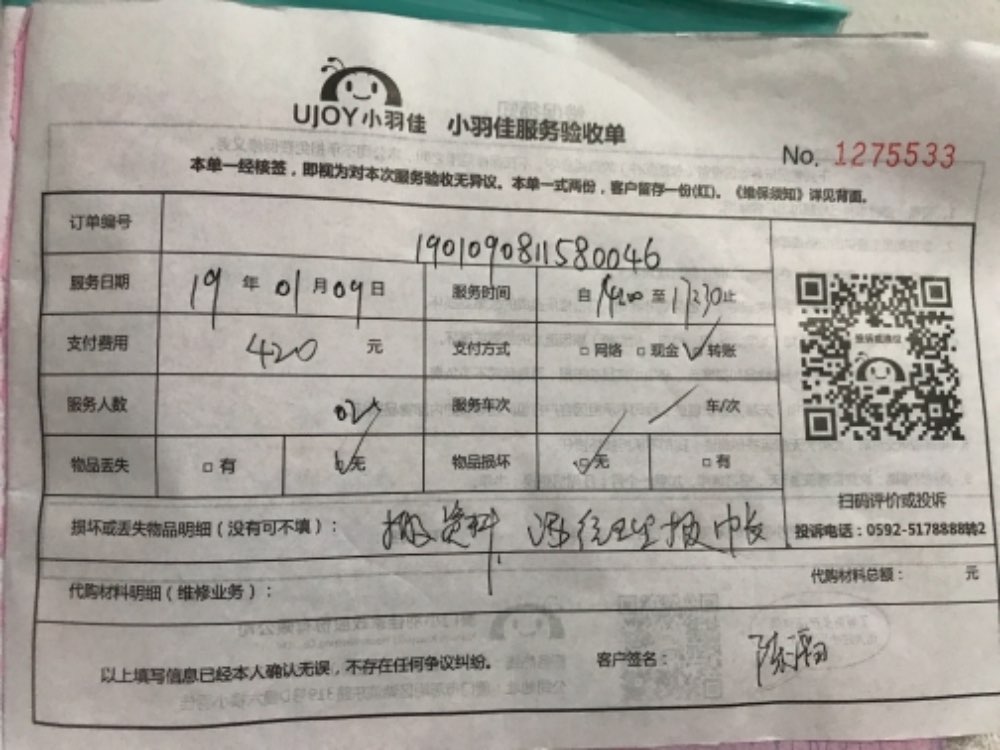 UJOY小羽佳 小羽佳服务验收单
No. 1275533
本单一经核签，即视为对本次服务验收无异议。本单一式两份，客户留存一份(红)。《维保须知》详见背面。
订单编号 190109081158004​6
服务日期 19 年 01 月 09 日 服务时间 自 1400 至 17230止
支付费用 420 元 支付方式 □网络 □现金 ☑转账
服务人数 02人 服务车次 / 车/次
物品丢失 □有 ☑无 物品损坏 ☑无 □有
扫码评价或投诉
损坏或丢失物品明细（没有可不填）： 搬资料
投诉电话：0592-5178888转2
代购材料明细（维修业务）： 代购材料总额： 元
以上填写信息已经本人确认无误，不存在任何争议纠纷。 客户签名：